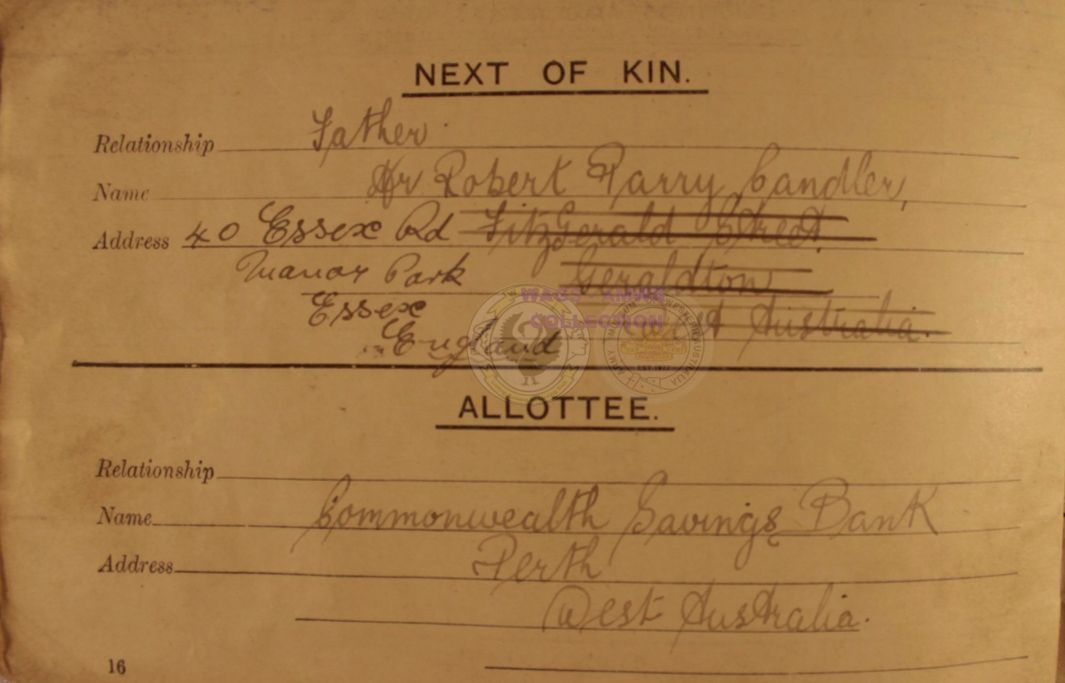 NEXT OF KIN.
Relationship Father
Name Mr Robert Parry Candler,
Address 40 Essex Rd FitzGerald Street
Manor Park Geraldton
Essex West Australia.
England
WAGS ANMR
COLLECTION
ALLOTTEE.
Relationship
Name Commonwealth Savings Bank
Address Perth
West Australia.
16